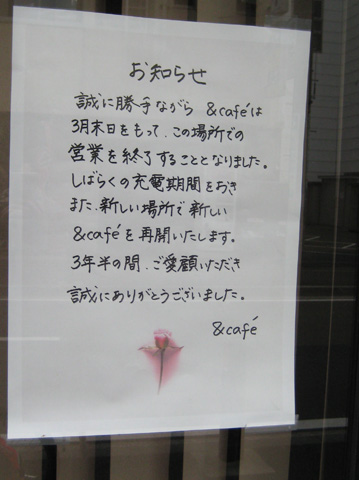 お知らせ
誠に勝手ながら &caféは
3月末日をもって、この場所での
営業を終了することとなりました。
しばらくの充電期間をおき
また、新しい場所で新しい
&caféを再開いたします。
3年半の間、ご愛顧いただき
誠にありがとうございました。
&café